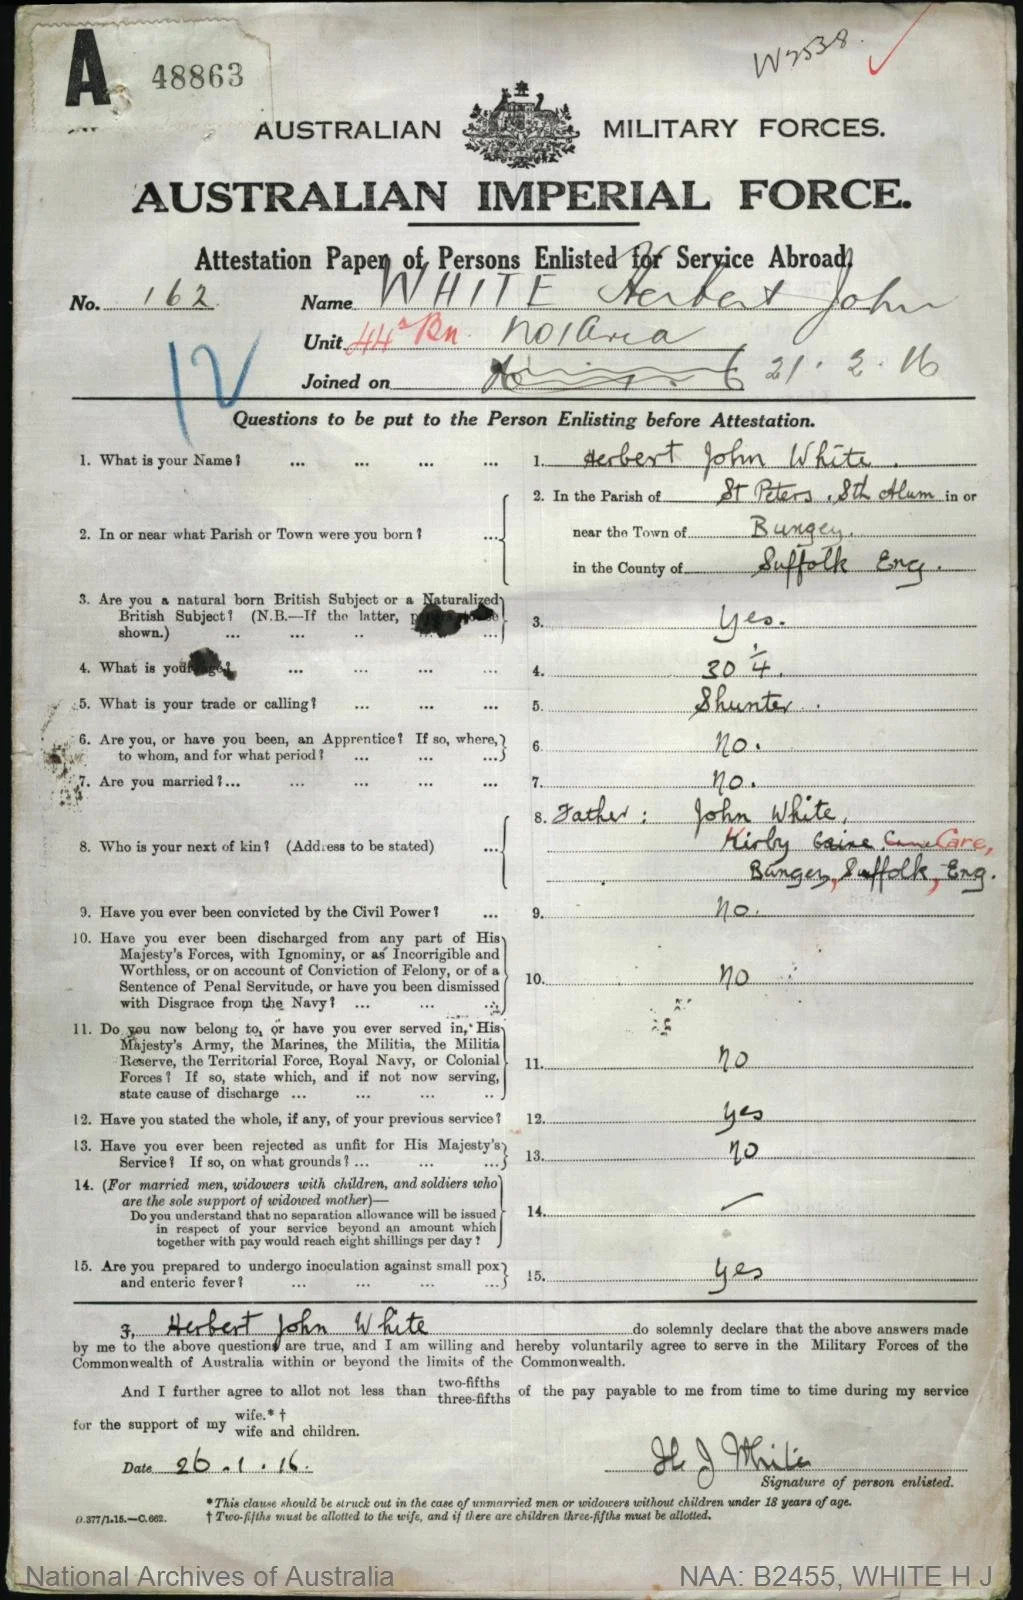 A 48863
W2538
AUSTRALIAN MILITARY FORCES.
AUSTRALIAN IMPERIAL FORCE.
Attestation Paper of Persons Enlisted for Service Abroad.
No. 162 Name WHITE Herbert John
Unit 44th Bn. No 1 Area
12
Joined on 21.2.16
Questions to be put to the Person Enlisting before Attestation.
1. What is your Name? ... ... ... ... 1. Herbert John White.
2. In or near what Parish or Town were you born? ... 2. In the Parish of St Peters, Sth Alum in or
near the Town of Bungey.
in the County of Suffolk Eng.
3. Are you a natural born British Subject or a Naturalized
British Subject? (N.B.—If the latter, papers to be
shown.) ... ... .. ... 3. Yes.
4. What is your age? ... ... ... ... 4. 30 1/4.
5. What is your trade or calling? ... ... ... 5. Shunter.
6. Are you, or have you been, an Apprentice? If so, where,
to whom, and for what period? ... ... ... 6. No.
7. Are you married?... ... ... ... ... 7. No.
8. Who is your next of kin? (Address to be stated) ... 8. Father: John White,
Kirby Caine Care,
Bungey, Suffolk, Eng.
9. Have you ever been convicted by the Civil Power? ... 9. No.
10. Have you ever been discharged from any part of His
Majesty's Forces, with Ignominy, or as Incorrigible and
Worthless, or on account of Conviction of Felony, or of a
Sentence of Penal Servitude, or have you been dismissed
with Disgrace from the Navy? ... ... ... 10. No
11. Do you now belong to, or have you ever served in, His
Majesty's Army, the Marines, the Militia, the Militia
Reserve, the Territorial Force, Royal Navy, or Colonial
Forces? If so, state which, and if not now serving,
state cause of discharge ... ... ... .. 11. No
12. Have you stated the whole, if any, of your previous service? 12. yes
13. Have you ever been rejected as unfit for His Majesty's
Service? If so, on what grounds? ... ... ... 13. No
14. (For married men, widowers with children, and soldiers who
are the sole support of widowed mother)—
Do you understand that no separation allowance will be issued
in respect of your service beyond an amount which
together with pay would reach eight shillings per day? 14. —
15. Are you prepared to undergo inoculation against small pox
and enteric fever? ... ... ... ... 15. yes
I, Herbert John White do solemnly declare that the above answers made
by me to the above questions are true, and I am willing and hereby voluntarily agree to serve in the Military Forces of the
Commonwealth of Australia within or beyond the limits of the Commonwealth.
And I further agree to allot not less than two-fifths three-fifths of the pay payable to me from time to time during my service
for the support of my wife.*† wife and children.
Date 26.1.16. H J White
Signature of person enlisted.
* This clause should be struck out in the case of unmarried men or widowers without children under 18 years of age.
D.377/1.15.—C.662. † Two-fifths must be allotted to the wife, and if there are children three-fifths must be allotted.
National Archives of Australia NAA: B2455, WHITE H J